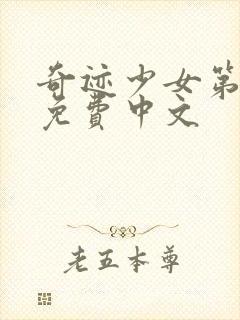 奇迹少女第
免費中文
老五本尊